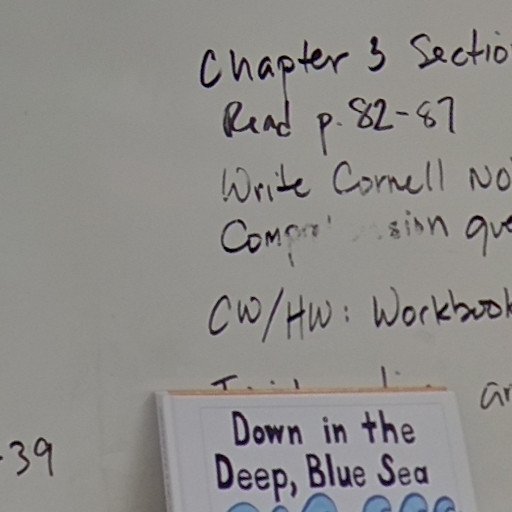 Chapter 3 Sectio
Read p. 82-87
Write Cornell No
sion que
CW/HW: Workbook
-39
Down in the
Deep, Blue Sea